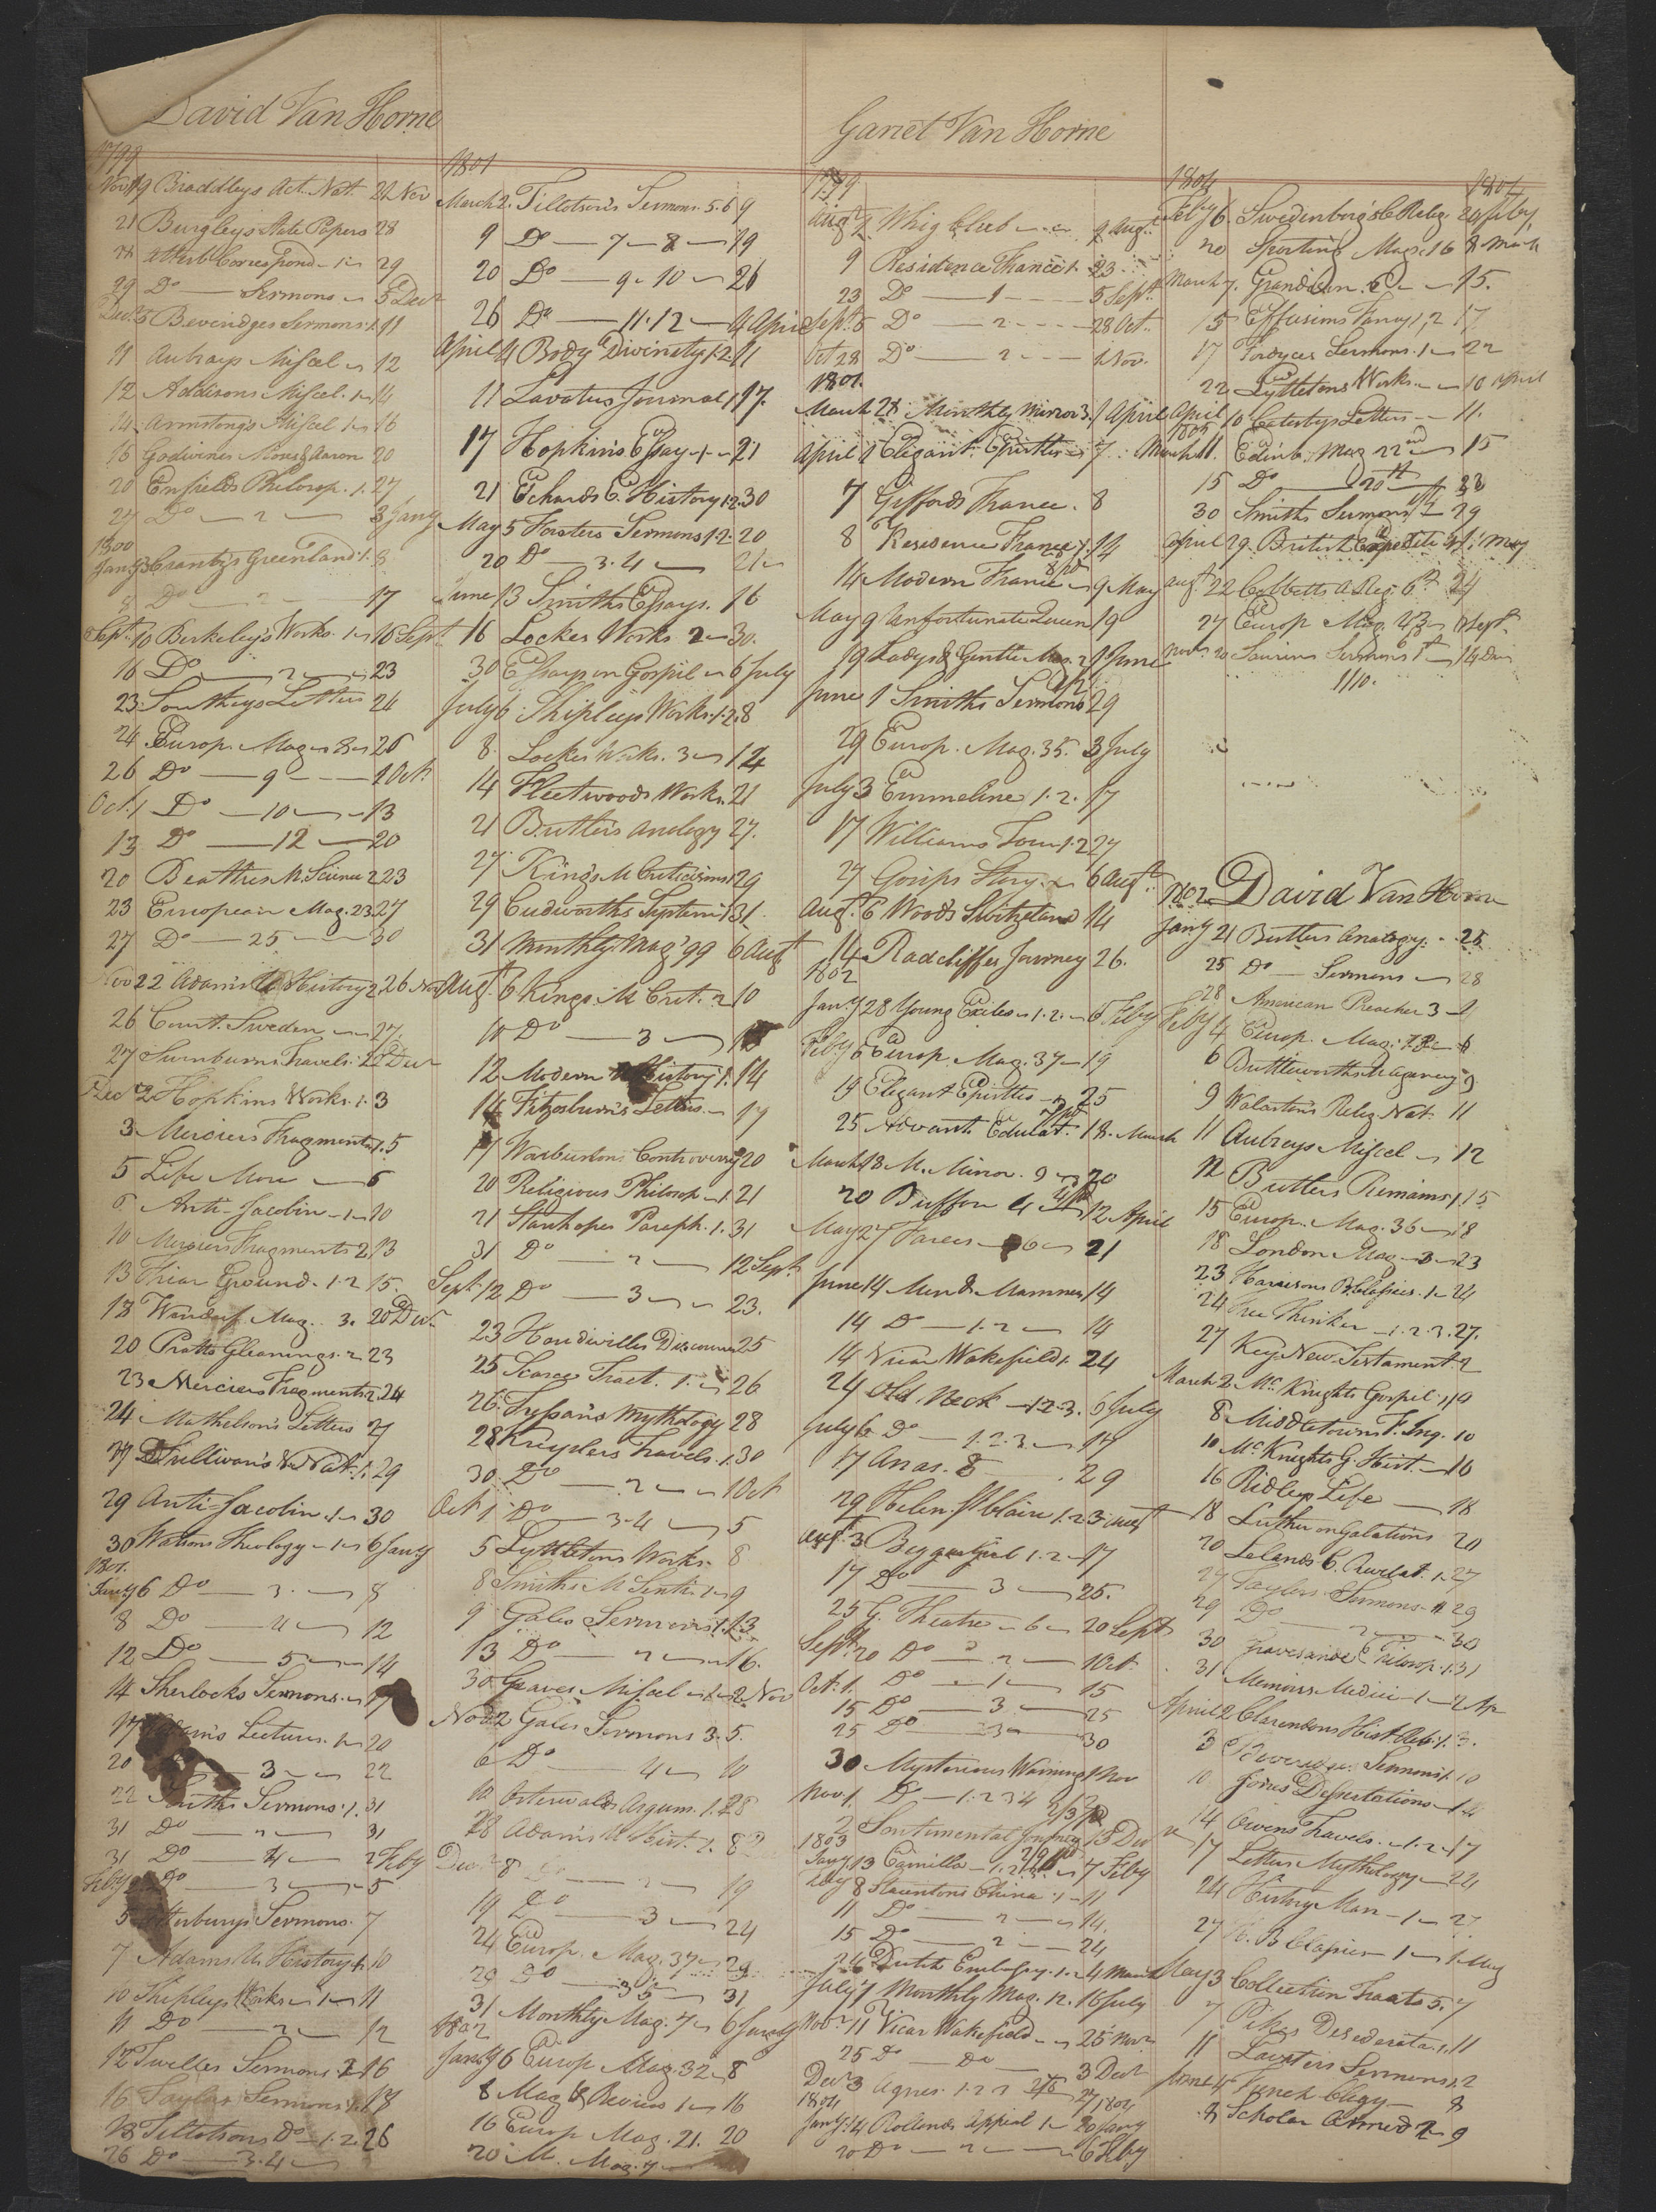 David Van Horne
1799
Nov 19 Braddleys Act. Natt. 21 Nov
21 Burgleys State Papers 28
Correspond 1 29
29 Do Sermons 5 Decr
Decr 5 Beveridges Sermons 1. 11
11 Aubrays Miscel 12
12 Addisons Miscel. 1 14
14 Armstongs Miscel 1 16
16 Godwines Moses & Aaron 20
20 Enfields Philosop. 1. 27
27 Do 2 3 Jany
1800
Jany 3 Crantz's Greenland 1. 8
8 Do 2 17
Sept. 10 Berkeley's Works. 1 16 Sept
16 Do 2 23
23 Southeys Letters 24
24 Europ. Mag 8 26
26 Do 9 1 Oct.
Oct. 1 Do 10 13
13 Do 12 20
20 Beatties M. Science 2 23
23 European Mag. 23 27
27 Do 25 30
Nov 22 Adams's History 2 26 Nov
26 Court. Sweden 27
27 Swinburns Travels. 2 Decr
Dec 2 Hopkins Works. 1. 3
3 Merciers Fragments 1. 5
5 Life More 6
6 Anti-Jacobin 1 10
10 Merciers Fragments 2 13
13 Friar Ground. 1. 2 15
18 Mag. 3. 20 Decr
20 Pratts Gleanings. 2 23
23 Merciers Fragments 2. 24
24 Mathelson's Letters 27
27 Sullivan's V Nat. 1. 29
29 Anti-Jacobin. 1 30
30 Watsons Theology 1 6 Jany
1801.
Jany 6 Do 3. 8
8 Do 4 12
12 Do 5 14
14 Sherlocks Sermons 17
17 Lectures. 1 20
20 3 22
22 Smiths Sermons. 1. 31
31 Do 2 31
31 Do 4 2 Feby
Feby 2 Do 3 5
5 Atterburys Sermons. 7
7 Adams U. History 1. 10
10 Shipleys Works 1 11
11 Do 2 12
12 Twelles Sermons. 2 16
16 Taylors Sermons 1. 18
18 Tillotsons Do 1. 2. 26
26 Do 3. 4
1801
March 2. Tillotson's Sermons. 5. 6 9
9 Do 7 8 19
20 Do 9. 10 26
26 Do 11. 12 4 April
April 4 Body Divinety 1. 2. 11
11 Lavatus Journal 1 17.
17 Hopkins Essay 1 21
21 Echards E. History 1. 2. 30
May 5 Forsters Sermons 1. 2. 20
20 Do 3. 4 21
June 13 Smiths Essays. 16
16 Lockes Works 2 30.
30 Essays on Gospil 6 July
July 6 Shipleys Works. 1. 2. 8
8. Lockes Works. 3 14
14 Fleetwoods Works. 21
21 Butlers Anology 27.
27 Kings M Criticisms 1 29
29 Cudworths System 1 31
31 Monthly Mag '99 6 Augt
Augt 6 Kings M Crit. 2 10
10 Do 3 12
12 Modern History 1. 14
14 Fitzosburn's Letters. 17
17 Warburtons Controversy 20
20 Religious Philosop 1. 21
21 Stanhopes Paraph. 1. 31
31 Do 2 12 Sept.
Sept 12 Do 3 23.
23 Houdivilles Discourses 25
25 Scarce Tract. 1. 26
26 Tressan's Mythology 28
28 Keyslers Travels. 1. 30
30 Do 2 1 Oct
Oct 1 Do 3. 4 5
5 Lyttletons Works. 8
8 Smiths M Senti. 1 9
9 Gales Sermons 1. 13
13 Do 2 16.
30 Graves Miscel. 1 2 Nov
Nov. 2 Gales Sermons 3. 5.
6 Do 4 10
10 Ostervalds Argum. 1. 28
28 Adams U Hist. 1. 8
Decr 8 Do 2 19
19 Do 3 24
24 Europ. Mag. 37 29
29 Do 35 31
31 Monthly Mag. 7 6 Jany
1802
Jany 6 Europ Mag. 32 8
8 Mag & Review 1 16
16 Europ Mag. 21. 20
20 M. Mag. 7
Garret Van Horne
1799
Augt 2 Whig Club 9 Augt
9 Residence France 1. 23
23 Do 1 5 Sept.
Sept. 5 Do 2 28 Oct.
Oct 28 Do 2 1 Nov.
1801.
March 28 Monthly Mirror 3. 1 April
April 1 Elegant Epistles 7.
7 Giffords France. 8
8 Residence France 1. 14
14 Modern France 9 May
May 9 Unfortunate Queen 19
19 Ladys & Gentle Mag. 2 1 June
June 1 Smiths Sermons 29
29 Europ. Mag. 35. 3 July
July 3 Emmeline 1. 2. 17
17 Williams Tour 1. 2 27
27 Gosips Story. 6 Augt
Augt. 6 Woods Switzeland 14
14 Radcliffes Journey 26.
1802
Jany 28 Young Exiles 1. 2. 5 Feby
Feby 5 Europ Mag. 37 19
19 Elegant Epistles 25
25 Advant. Educat. 18. March
March 18 M. Mirror. 9 20
20 Buffon 4 12 April
May 27 Farces 6 21
June 14 Men & Manners 14
14 Do 1. 2 14
14 Vicar Wakefield 1. 24
24 Old Neck 1. 2. 3. 6 July
July 6 Do 1. 2. 3 17
17 Anas. 29
29 Helen St Claire 1. 2 3 Augt
Augt. 3 Beggar Girl 1. 2 17
17 Do 3 25.
25 G. Theatre 6 20 Sept
Sept. 20 Do 2 1 Oct.
Oct. 1. Do 1 15
15 Do 3 25
25 Do 3 30
30 Mysterious Warning 1 Nov
Nov 1. Do 1. 2 3 4
2 Sentimental Journey 13 Decr
1803
Jany 13 Camilla 1. 2 7 Feby
Feby 8 Stauntons China 1 11
11 Do 2 14.
15 Do 2 24
24 Dutch Embassy. 1. 2 4 March
July 7 Monthly Mag. 12. 16 July
Novr 11 Vicar Wakefield 25 Novr
25 Do Do 3 Decr
Decr 3 Agnes. 1. 2 3 2/8 27 1804
1804
Jany 14 Rollands Appeal 1 20 Jany
20 Do 2 6 Feby
1804 1804
Feby 6. Swedenborg's C Relig. 20 Feby
20 Sporting Mag. 16 8 March
March 7. 15.
15 Effusions Fancy 1, 2 17
17 Fordyces Sermons. 1 22
22 Lyttletons Works 10 April
April 10 Letters 11.
1805
March 11. Edinb. Mag 22nd 15
15 Do 20th 30
30 Smiths Sermons 29
April 29. British Expedit. 1. May
Augt 22 Cobbetts A Reg. 6th 24
27 Europ Mag. 43 Sept.
Novr 20 Saurins Sermons 14 Decr
1110.
1802 David Van Horne
Jany 21 Butlers Anology. 25
25 Do Sermons 28
28 American Preacher 3 4
Feby 4 Europ. Mag. 6
6 Buttleworths 9
9 Walaston's Relig. Nat. 11
11 Aubreys Miscel 12
12 Butlers Remains 1 15
15 Europ. Mag. 36 18
18 London Mag 3 23
23 Harrisons B. Classics. 1 24
24 Free Thinker 1. 2. 3. 27.
27 Key New Testament. 2
March 2. Mc Knights Gospel. 1 8
8 Middletowns F. Inq. 10
10 Mc Knights G. Hist. 16
16 Ridleys Life 18
18 Luther on Galations 20
20 Lelands C. Revelat. 1. 27
27 Taylors Sermons 29
29 Do 2 30
30 Gravesande Philosop. 1. 31
31 Memoirs Medici 1 2 Ap
April 2 Clarendons Hist. Reb. 1. 3.
3 Beveridges Sermons 1. 10
10 Jones Dissertations 14
14 Owens Travels. 1. 2 17
17 Letters Mythology 24
24 History Man 1 27
27 H. B Classics 1 1 May
May 3 Collection Tracts 5. 7
7 Pikes Desederata. 1. 11
11 Lavaters Sermons 1. 2
June 4 French Clergy 8
8 Scholar Armed 2 9